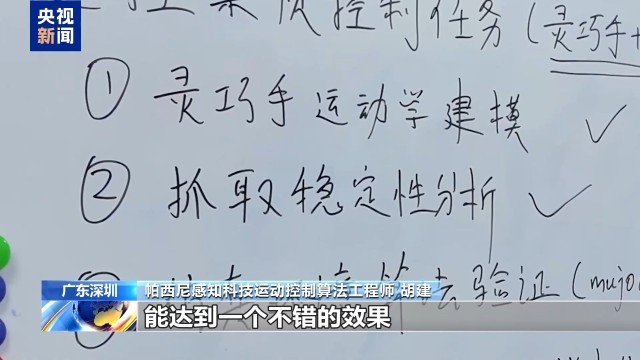 央视
新闻
控制任务(灵巧手+
① 灵巧手运动学建模 ✓
② 抓取稳定性分析 ✓
验证(mujo
广东深圳
帕西尼感知科技运动控制算法工程师 胡建
能达到一个不错的效果